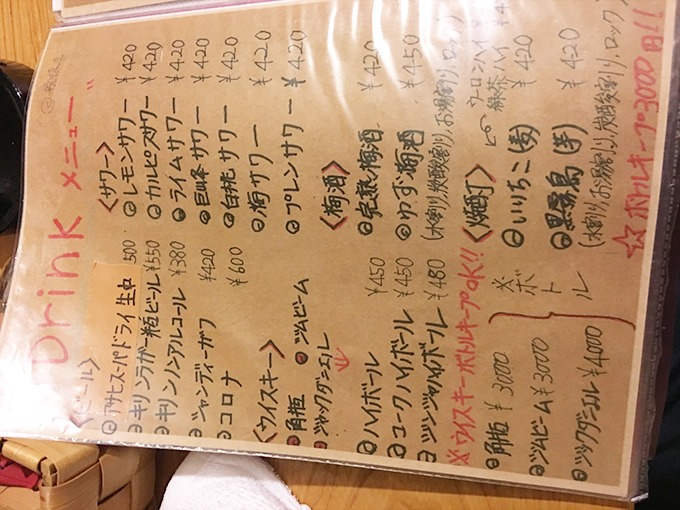 Drink メニュー
<ビール>
アサヒスーパードライ生中 500
キリンラガー瓶ビール ¥550
キリンノンアルコール ¥380
シャンディーガフ ¥420
コロナ ¥600
<ウイスキー>
角瓶 ジムビーム
ジャックダニエル
↓
ハイボール ¥450
コークハイボール ¥450
ジンジャハイボール ¥480
※ウイスキーボトルキープOK!!
角瓶 ¥3000
ジムビーム ¥3000
ジャックダニエル ¥4000
※ボトル
<サワー>
レモンサワー ¥420
カルピスサワー ¥420
ライムサワー ¥420
巨峰サワー ¥420
白桃サワー ¥420
梅サワー ¥420
プレンサワー ¥420
<梅酒>
完熟梅酒 ¥420
ゆず梅酒 ¥450
(水割り,炭酸割り,お湯割り,ロック)
<焼酎>
ウーロンハイ
緑茶ハイ
いいちこ(麦) ¥420
黒霧島(芋) ¥420
(水割り,お湯割り,炭酸割り,ロック)
☆ボトルキープ3000円!!